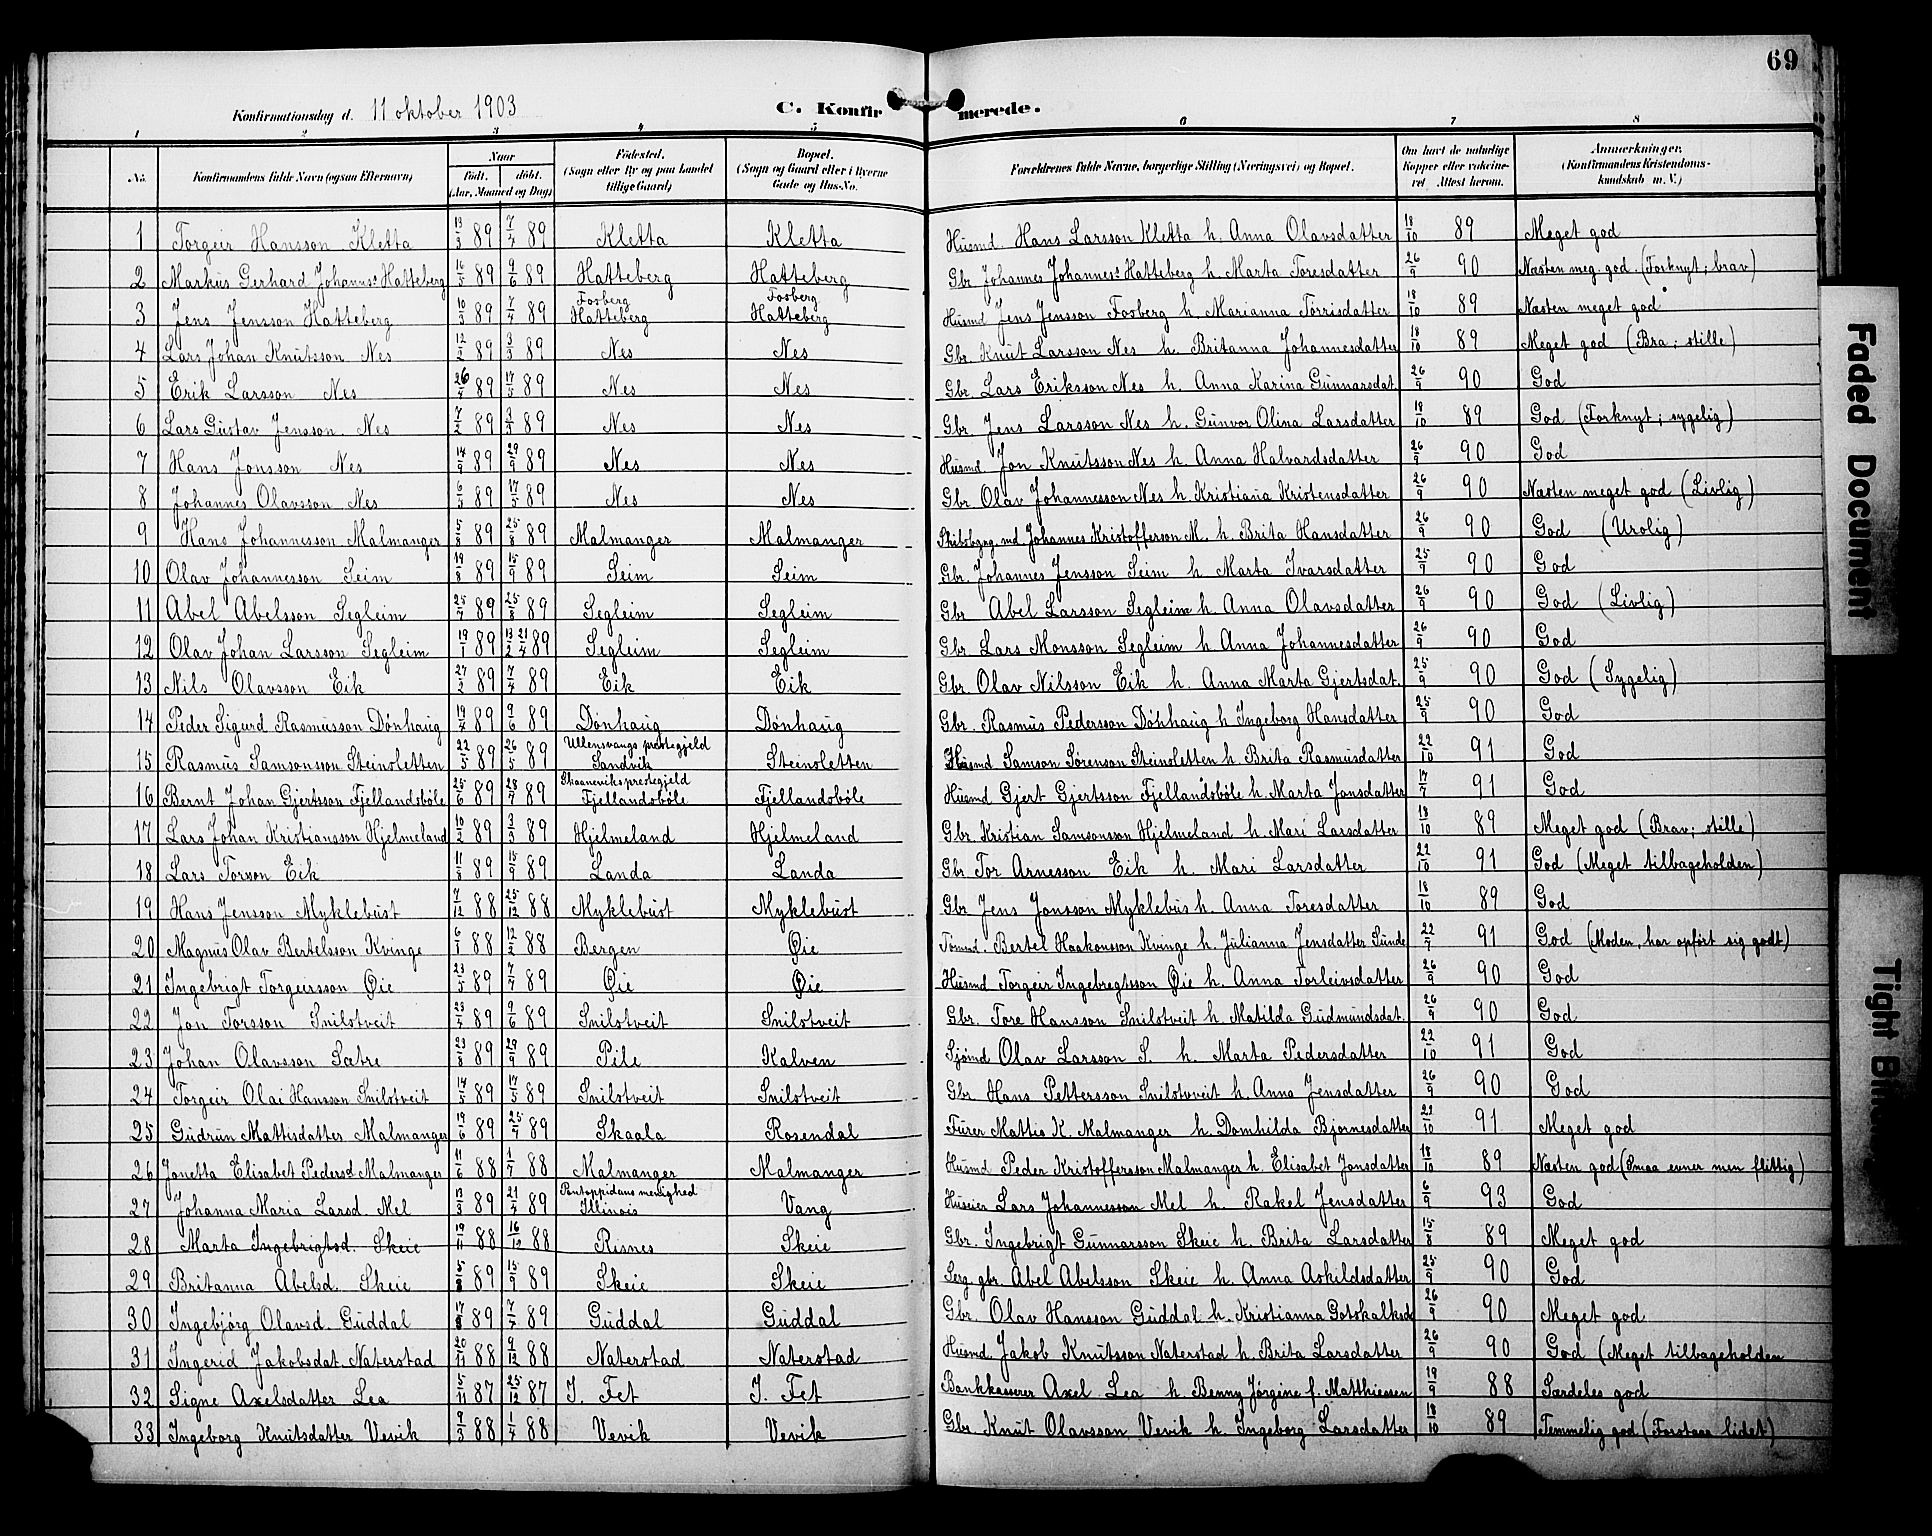 69
Konfirmationsdag d. 11 oktober 1903
C. Konfirmerede.
1 2 3 4 5 6 7 8
No. Konfirmandens fulde Navn (ogsaa Efternavn) Naar født. døbt. (Aar, Maaned og Dag) Fødested. (Sogn eller By og paa Landet tillige Gaard) Bopæl. (Sogn og Gaard eller i Byerne Gade og Hus-No. Forældrenes fulde Navne, borgerlige Stilling (Næringsvei) og Bopæl. Om havt de naturlige Kopper eller vakcineret Attest herom. Anmærkninger. (Konfirmandens Kristendomskundskab m. V.)
1 Torgeir Hansson Kletta 13/3 89 7/4 89 Kletta Kletta Husmd. Hans Larsson Kletta h. Anna Olavsdatter 18/10 89 Meget god
2 Markus Gerhard Johanns. Hatteberg 16/5 89 9/6 89 Hatteberg Hatteberg Gbr. Johannes Johanness. Hatteberg h. Marta Toresdatter 26/9 90 Næsten meg. god. (Forknyt; brav)
3 Jens Jensson Hatteberg 10/3 89 7/4 89 Fosberg Hatteberg Fosberg Hatteberg Husmd Jens Jensson Fosberg h. Marianna Tørrisdatter 18/10 89 Næsten meget god
4 Lars Johan Knutsson Nes 12/2 89 3/3 89 Nes Nes Gbr. Knut Larsson Nes h. Britanna Johannesdatter 18/10 89 Meget god (Bra; stille)
5 Erik Larsson Nes 26/4 89 17/5 89 Nes Nes Gbr. Lars Eriksson Nes h. Anna Karina Gunnarsdat. 26/9 90 God
6 Lars Gustav Jensson Nes 7/2 89 3/3 89 Nes Nes Gbr. Jens Larsson Nes h. Gunvor Olina Larsdatter 18/10 89 God (Forknyt; sygelig)
7 Hans Jonsson Nes 14/9 89 29/9 89 Nes Nes Husmd. Jon Knutsson Nes h. Anna Halvardsdatter 26/9 90 God
8 Johannes Olavsson Nes 6/5 89 17/5 89 Nes Nes Gbr. Olav Johannesson Nes h. Kristiana Kristensdatter 26/9 90 Næsten meget god (Livlig)
9 Hans Johannesson Malmanger 5/8 89 25/8 89 Malmanger Malmanger Skibsbygg.md. Johannes Kristofferson M. h. Brita Hansdatter 26/9 90 God (Urolig)
10 Olav Johannesson Seim 19/8 89 15/9 89 Seim Seim Gbr. Johannes Jensson Seim h. Marta Ivarsdatter 25/9 90 God
11 Abel Abelsson Segleim 25/7 89 25/8 89 Segleim Segleim Gbr Abel Larsson Segleim h. Anna Olavsdatter 26/9 90 God (Livlig)
12 Olav Johan Larsson Segleim 19/1 89 13/2 21/4 89 Segleim Segleim Gbr Lars Monsson Segleim h Anna Johannesdatter 26/9 90 God
13 Nils Olavsson Eik 27/2 89 7/4 89 Eik Eik Gbr. Olav Nilsson Eik h. Anna Marta Gjertsdat. 25/9 90 God (Sygelig)
14 Peder Sigurd Rasmusson Dønhaug 19/4 89 9/6 89 Dønhaug Dønhaug Gbr. Rasmus Pedersson Dønhaug h Ingeborg Hansdatter 25/9 90 God
15 Rasmus Samsonsson Steinsletten 22/5 89 26/5 89 Ullensvangs prestegjeld Sandvik Steinsletten Husmd Samson Sørenson Steinsletten h. Brita Rasmusdatter 22/10 91 God
16 Bernt Johan Gjertsson Fjellandsbøle 25/6 89 28/7 89 Skaaneviks prestegjeld Fjellandsbøle Fjellandsbøle Husmd Gjert Gjertsson Fjellandsbøle h. Marta Jonsdatter 17/7 91 God
17 Lars Johan Kristiansson Hjelmeland 10/2 89 3/3 89 Hjelmeland Hjelmeland Gbr. Kristian Samsonsson Hjelmeland h. Mari Larsdatter 18/10 89 Meget god (Brav; stille)
18 Lars Torson Eik 11/8 89 15/9 89 Landa Landa Gbr Tor Arnesson Eik h. Mari Larsdatter 22/10 91 God (Meget tilbageholden)
19 Hans Jensson Myklebust 7/12 88 25/12 88 Myklebust Myklebust Gbr Jens Jonsson Myklebus h. Anna Toresdatter 18/10 89 God
20 Magnus Olav Bertelsson Kvinge 6/1 88 12/2 88 Bergen Øie Tømmd. Bertel Haakonsson Kvinge h. Julianna Jensdatter Sunde 22/7 91 God (Moden, har opført sig godt)
21 Ingebrigt Torgeirsson Øie 23/3 89 7/4 89 Øie Øie Husmd Torgeir Ingebregtsson Øie h. Anna Torleivsdatter 26/9 90 God
22 Jon Torsson Snilstveit 23/4 89 9/6 89 Snilstveit Snilstveit Gbr. Tore Hansson Snilstveit h. Matilda Gudmundsdat. 26/9 90 God
23 Johan Olavsson Sætre 23/8 89 29/9 89 Pile Kalven Sjømd Olav Larsson S. h. Marta Pedersdatter 22/10 91 God
24 Torgeir Olai Hansson Snilstveit 14/5 89 17/5 89 Snilstveit Snilstveit Gbr. Hans Pettersson Snilstveit h. Anna Jensdatter 26/9 90 God
25 Gudrun Mattisdatter Malmanger 19/6 89 25/7 89 Skaala Rosendal Fürer Mattis K. Malmanger h. Domhilda Bjornesdatter 22/10 91 Meget god
26 Jonetta Elisabet Pedersd Malmanger 11/6 88 1/7 88 Malmanger Malmanger Husmd Peder Kristoffersson Malmanger h. Elisabet Jonsdatter 18/10 89 Næsten god (Smaa evner men flittig)
27 Johanna Maria Larsd. Mel 13/3 89 21/4 89 Pontoppidans menighed Illinois Vang Huseier Lars Johannesson Mel h. Rakel Jensdatter 6/9 93 God
28 Marta Ingebrigtsd. Skeie 19/11 88 16/12 88 Risnes Skeie Gbr. Ingebrigt Gunnarsson Skeie h. Brita Larsdatter 15/8 89 Meget god
29 Britanna Abelsd. Skeie 5/8 89 15/9 89 Skeie Skeie Serg. gbr. Abel Abelsson Skeie h. Anna Askildsdatter 25/9 90 God
30 Ingebjørg Olavsd. Guddal 17/3 89 7/4 89 Guddal Guddal Gbr. Olav Hansson Guddal h. Kristianna Gotskalksd. 26/9 90 Meget god
31 Ingerid Jakobsdat. Naterstad 20/11 88 9/12 88 Naterstad Naterstad Husmd. Jakob Knutsson Naterstad h. Brita Larsdatter 26/9 90 God (Meget tilbageholden
32 Signe Axelsdatter Lea 5/11 87 25/12 87 I. Fet I. Fet Bankkasserer Axel Lea h Benny Jørgine f. Matthiessen 19/9 88 Særdeles god
33 Ingeborg Knutsdatter Vevik 9/3 88 1/4 88 Vevik Vevik Gbr. Knut Olavsson Vevik h. Ingeborg Larsdatter 18/10 89 Temmelig god (Forstaar lidet)
Faded Document
Tight